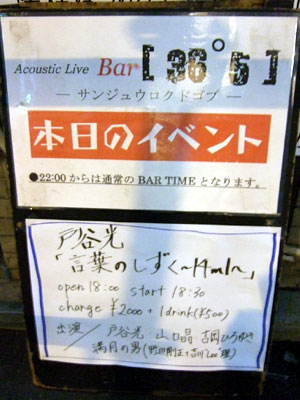 Acoustic Live Bar [36°5]
― サンジュウロクドゴブ ―
本日のイベント
●22:00 からは通常の BAR TIME となります。
戸谷光
「言葉のしずく〜14ml〜」
open 18:00 start 18:30
charge ¥2000 + 1drink(¥500)
出演/ 戸谷光 山口晶 吉岡ひろゆき
満月の男(